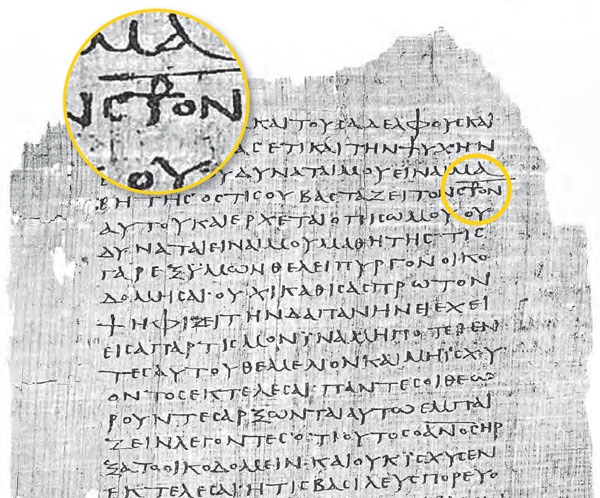 ΜΑ
ΝC⳨ΟΝ
ΟΥ
ΚΑΙΤΟΥCΑΔΕΛΦΟΥCΚΑΙ
ΑCΕΤΙΚΑΙΤΗΝΨΥΧΗΝ
ΥΔΥΝΑΤΑΙΜΟΥΕΙΝΑΙΜΑ
ΘΗΤΗCΟCΤΙCΟΥΒΑCΤΑΖΕΙΤΟΝC⳨ΟΝ
ΑΥΤΟΥΚΑΙΕΡΧΕΤΑΙΟΠΙCΩΜΟΥΟΥ
ΔΥΝΑΤΑΙΕΙΝΑΙΜΟΥΜΑΘΗΤΗCΤΙC
ΓΑΡΕΞΥΜΩΝΘΕΛΕΙΠΥΡΓΟΝΟΙΚΟ
ΔΟΜΗCΑΙ·ΟΥΧΙΚΑΘΙCΑCΠΡΩΤΟΝ
ΨΗΦΙΖΕΙΤΗΝΔΑΠΑΝΗΝΕΙΕΧΕΙ
ΕΙCΑΠΑΡΤΙCΜΟΝΙΝΑΜΗΠΟΤΕΘΕΝ
ΤΕCΑΥΤΟΥΘΕΜΕΛΙΟΝΚΑΙΜΗΙCΧΥ
ΟΝΤΟCΕΚΤΕΛΕCΑΙ·ΠΑΝΤΕCΟΙΘΕΩ
ΡΟΥΝΤΕCΑΡΞΩΝΤΑΙΑΥΤΩΕΜΠΑΙ
ΖΕΙΝΛΕΓΟΝΤΕC·ΟΤΙΟΥΤΟCΟΑΝΟCΗΡ
ΞΑΤΟΟΙΚΟΔΟΜΕΙΝ·ΚΑΙΟΥΚΙCΧΥCΕΝ
ΕΚΤΕΛΕCΑΙ·ΗΤΙCΒΑCΙΛΕΥCΠΟΡΕΥΟ